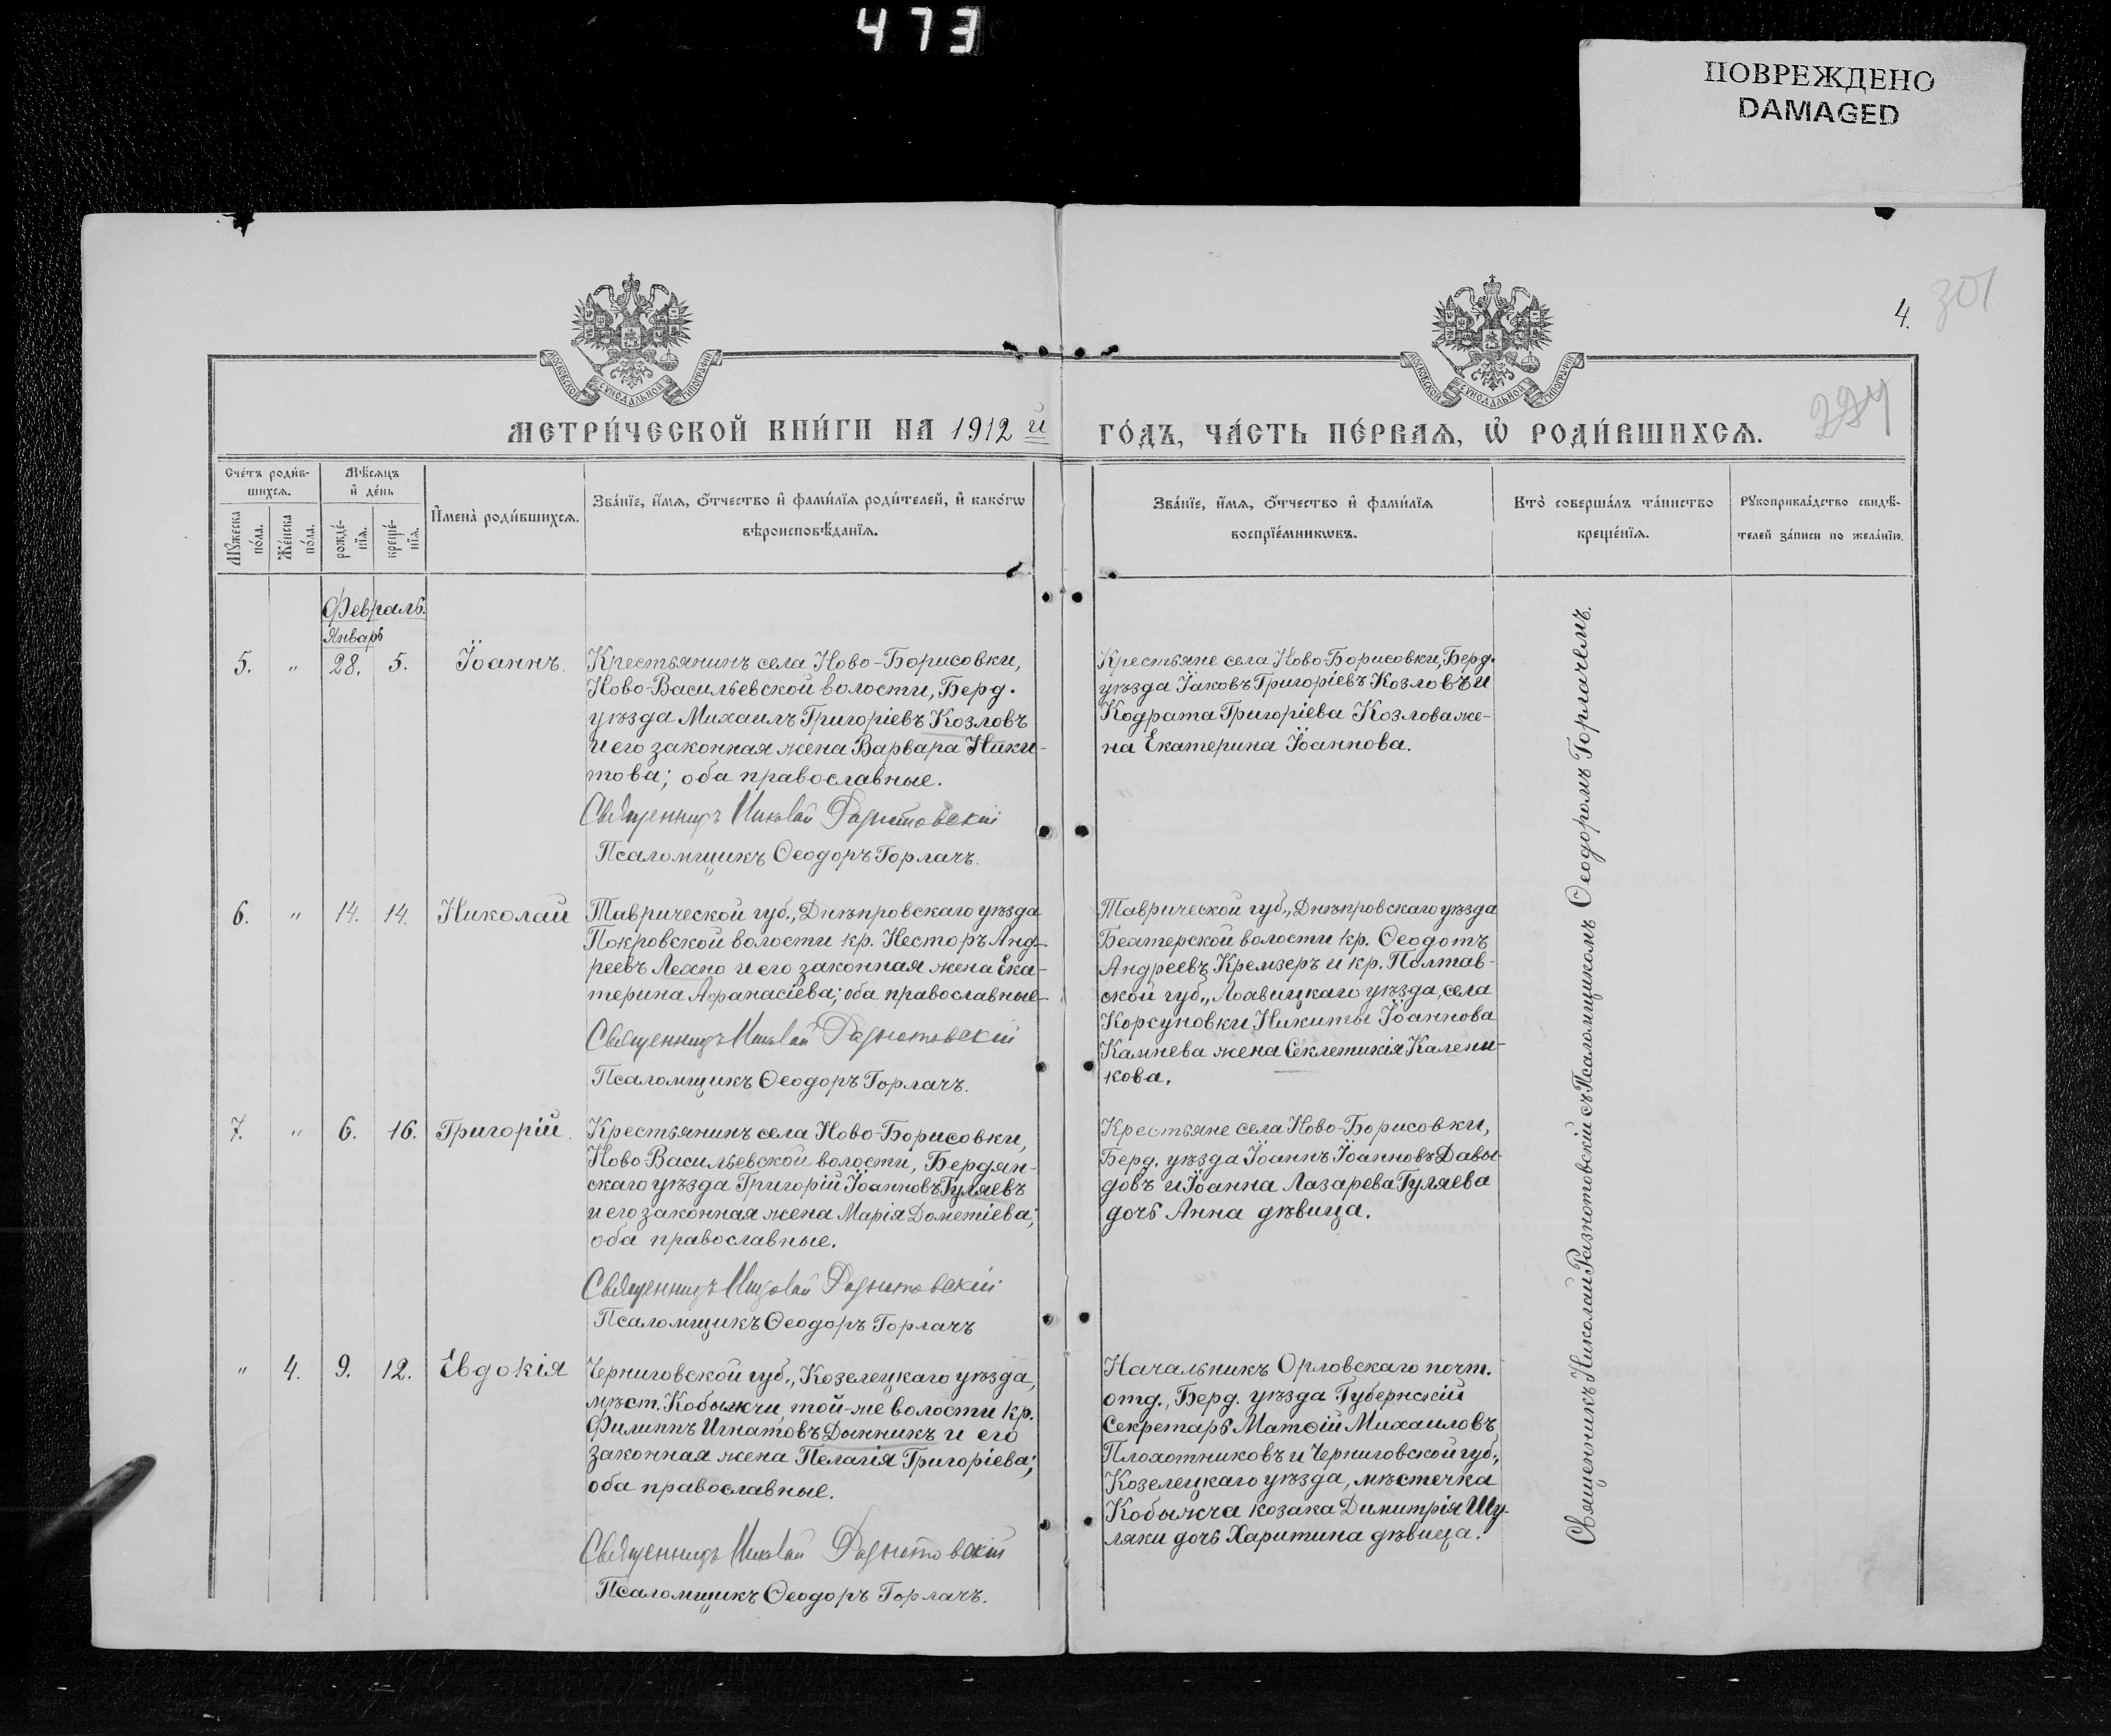 473
ПОВРЕЖДЕНО
DAMAGED
4.
301
294
МОСКОВСКОЙ СѴНОДАЛЬНОЙ ТИПОГРАФІИ
МОСКОВСКОЙ СѴНОДАЛЬНОЙ ТИПОГРАФІИ
МЕТРИ́ЧЕСКОЙ КНИ́ГИ НА 1912 й ГО́ДЪ, ЧА́СТЬ ПЕ́РВАѦ, Ѡ҆ РОДИ́ВШИХСѦ.
Сче́тъ роди́в-
шихсѧ.
Мѣ́сѧцъ
и҆ де́нь
Мꙋ́жеска
по́ла.
Же́нска
по́ла.
рожде́-
нїѧ.
креще́-
нїѧ.
И҆мена̀ роди́вшихсѧ.
Зва́нїе, и҆́мѧ, ѻ҆́тчество и҆ фами́лїѧ роди́телей, и҆ како́гѡ
вѣроисповѣ́данїѧ.
Зва́нїе, и҆́мѧ, ѻ҆́тчество и҆ фами́лїѧ
воспрїе́мникѡвъ.
Кто̀ соверша́лъ та́инство
креще́нїѧ.
Рꙋкоприкла́дство свидѣ́-
телей за́писи по жела́нїю.
Февраль.
Январь
5. " 28. 5. Іоаннъ.
Крестьянинъ села Ново-Борисовки,
Ново-Васильевской волости, Берд.
уѣзда Михаилъ Григоріевъ Козловъ
и его законная жена Варвара Ники-
това; оба православные.
Священникъ Николай Разнотовскій
Псаломщикъ Ѳеодоръ Горлачъ.
Крестьяне села Ново-Борисовки, Берд.
уѣзда Іаковъ Григоріевъ Козловъ и
Кодрата Григоріева Козлова же-
на Екатерина Іоаннова.
6. " 14. 14. Николай
Таврической губ., Днѣпровскаго уѣзда
Покровской волости кр. Несторъ Анд-
реевъ Лехно и его законная жена Ека-
терина Афанасіева; оба православные
Священникъ Николай Разнотовскій
Псаломщикъ Ѳеодоръ Горлачъ.
Таврической губ., Днѣпровскаго уѣзда
Беатерской волости кр. Ѳеодотъ
Андреевъ Кремзеръ и кр. Полтав-
ской губ., Лохвицкаго уѣзда, села
Корсуновки Никиты Іоаннова
Камнева жена Секлетикія Калени-
кова.
7. " 6. 16. Григорій.
Крестьянинъ села Ново-Борисовки,
Ново-Васильевской волости, Бердян-
скаго уѣзда Григорій Іоанновъ Гуляевъ
и его законная жена Марія Дометіева;
оба православные.
Священникъ Николай Разнотовскій
Псаломщикъ Ѳеодоръ Горлачъ
Крестьяне села Ново-Борисовки,
Берд. уѣзда Іоаннъ Іоанновъ Давы-
довъ и Іоанна Лазарева Гуляева
дочь Анна дѣвица.
" 4. 9. 12. Евдокія
Черниговской губ., Козелецкаго уѣзда,
мѣст. Кобыжчи, той-же волости кр.
Филиппъ Игнатовъ Дынникъ и его
законная жена Пелагія Григоріева;
оба православные.
Священникъ Николай Разнотовскій
Псаломщикъ Ѳеодоръ Горлачъ.
Начальникъ Орловскаго почт.
отд., Берд. уѣзда Губернскій
Секретарь Матѳій Михаиловъ
Плохотниковъ и Черниговской губ.,
Козелецкаго уѣзда, мѣстечка
Кобыжча козака Димитрія Шу-
ляки дочь Харитина дѣвица.
Священникъ Николай Разнотовскій съ Псаломщикомъ Ѳеодоромъ Горлачемъ.